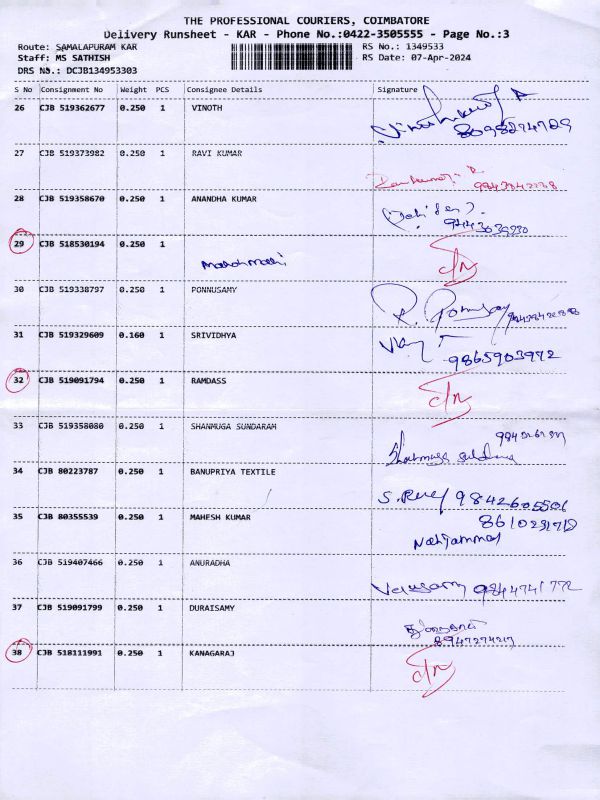 THE PROFESSIONAL COURIERS, COIMBATORE
Delivery Runsheet - KAR - Phone No.:0422-3505555 - Page No.:3
Route: SAMALAPURAM KAR RS No.: 1349533
Staff: MS SATHISH RS Date: 07-Apr-2024
DRS No.: DCJB134953303
S No Consignment No Weight PCS Consignee Details Signature
26 CJB 519362677 0.250 1 VINOTH
27 CJB 519373982 0.250 1 RAVI KUMAR
28 CJB 519358670 0.250 1 ANANDHA KUMAR
29 CJB 518530194 0.250 1
30 CJB 519338797 0.250 1 PONNUSAMY
31 CJB 519329609 0.160 1 SRIVIDHYA
9865903972
32 CJB 519091794 0.250 1 RAMDASS
33 CJB 519358080 0.250 1 SHANMUGA SUNDARAM
34 CJB 80223787 0.250 1 BANUPRIYA TEXTILE
9842605506
35 CJB 80355539 0.250 1 MAHESH KUMAR
36 CJB 519407466 0.250 1 ANURADHA
37 CJB 519091799 0.250 1 DURAISAMY
38 CJB 518111991 0.250 1 KANAGARAJ